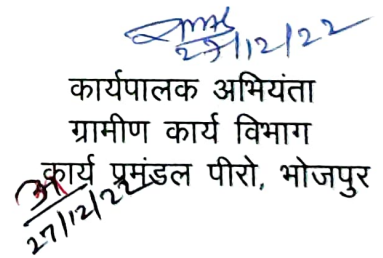 27/12/22
कार्यपालक अभियंता
ग्रामीण कार्य विभाग
कार्य प्रमंडल पीरो, भोजपुर
27/12/22